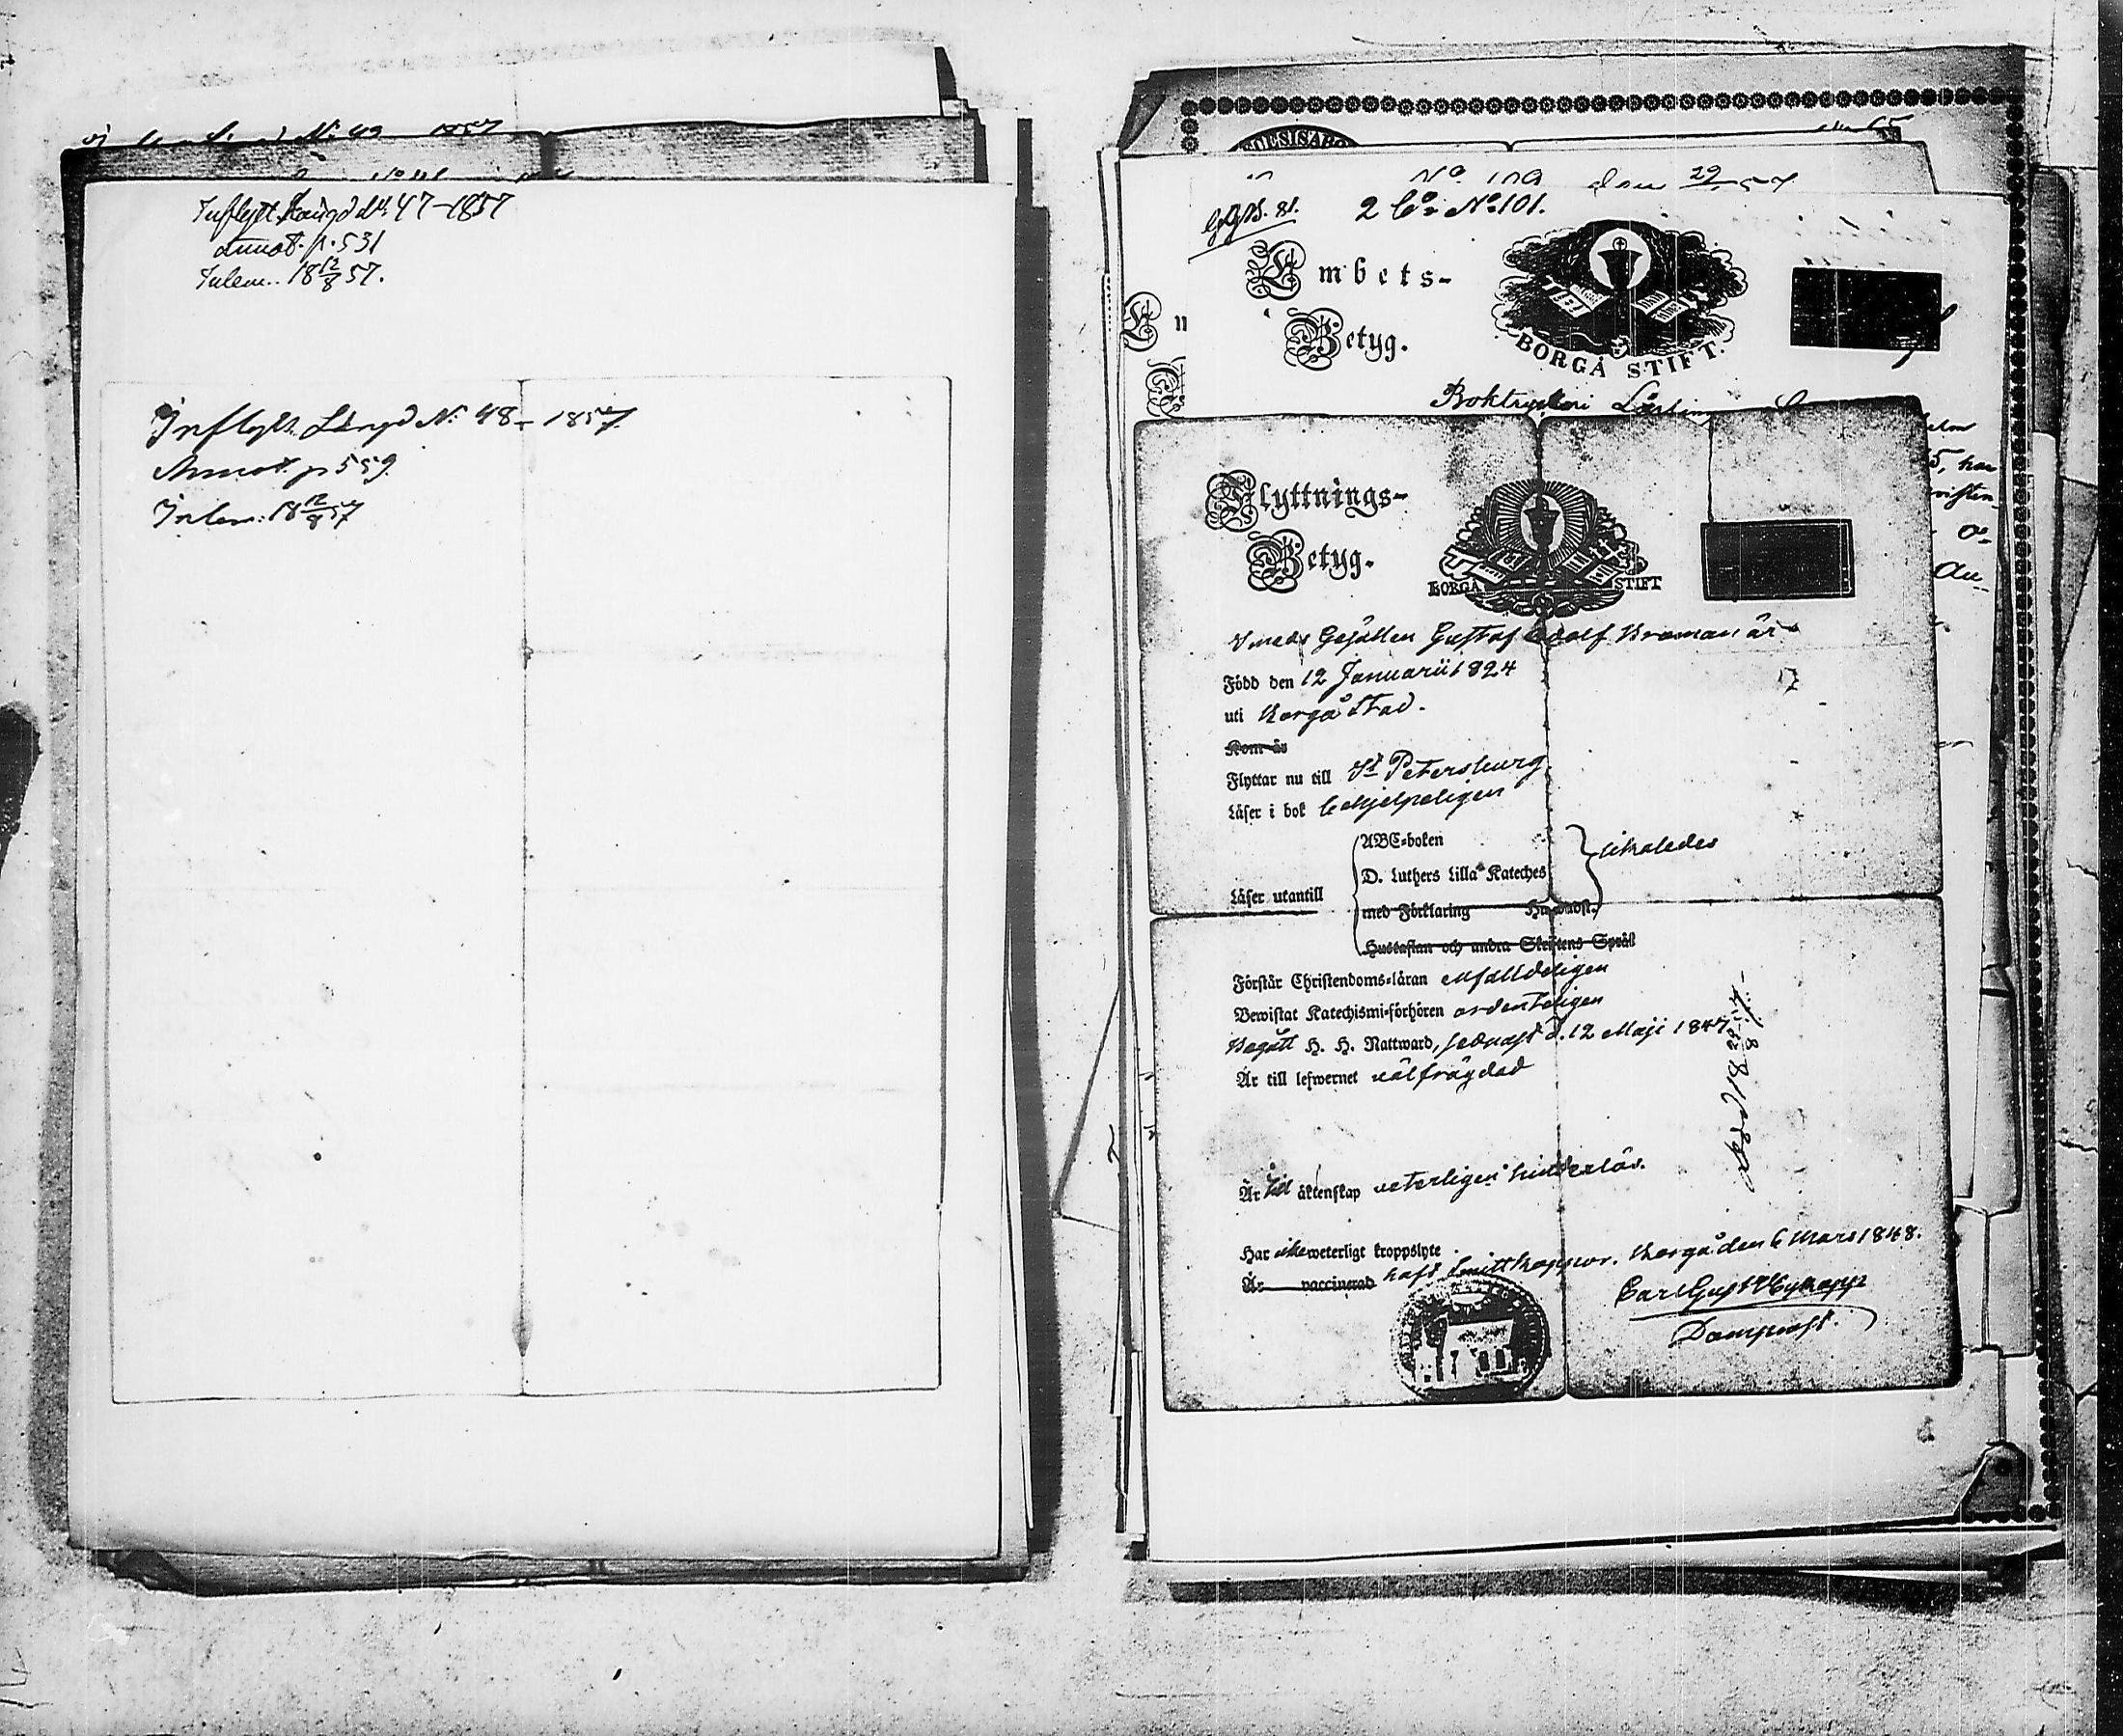 Inflytt Längd No 47-1857
annot. p. 531
Inlem. 18 12/8 57.
Inflytt. Längd No 48 - 1857
Annot. p 559
Inlem: 18 12/8 57
den 29 57
2 Co: No 101.
Embets-
Betyg.
BORGÅ STIFT.
Boktryckeri
Flyttnings-
Betyg.
BORGÅ STIFT
Smeds Gesällen Gustaf Adolf Broman är
Född den 12 Januarii 1824
uti Borgå Stad.
Kom år
Flyttar nu till St Petersburg
Läser i bok behjelpeligen
ABC-boken
D. Luthers Lilla Kateches
likaledes
Läser utantill
med Förklaring
Hustaflan och andra Skriftens Språk
Förstår Christendoms-läran enfalldeligen
Bewistat Katechismi-förhören ordenteligen
Begått H. H. Nattward, sednast d. 12 Maji 1847
Är till lefwernet välfrägdad
Är till äktenskap veterligen hinderlös.
Har icke weterligt kroppslyte
Är vaccinerad haft Smittkoppor. Borgå den 6 Mars 1848.
Domprost.